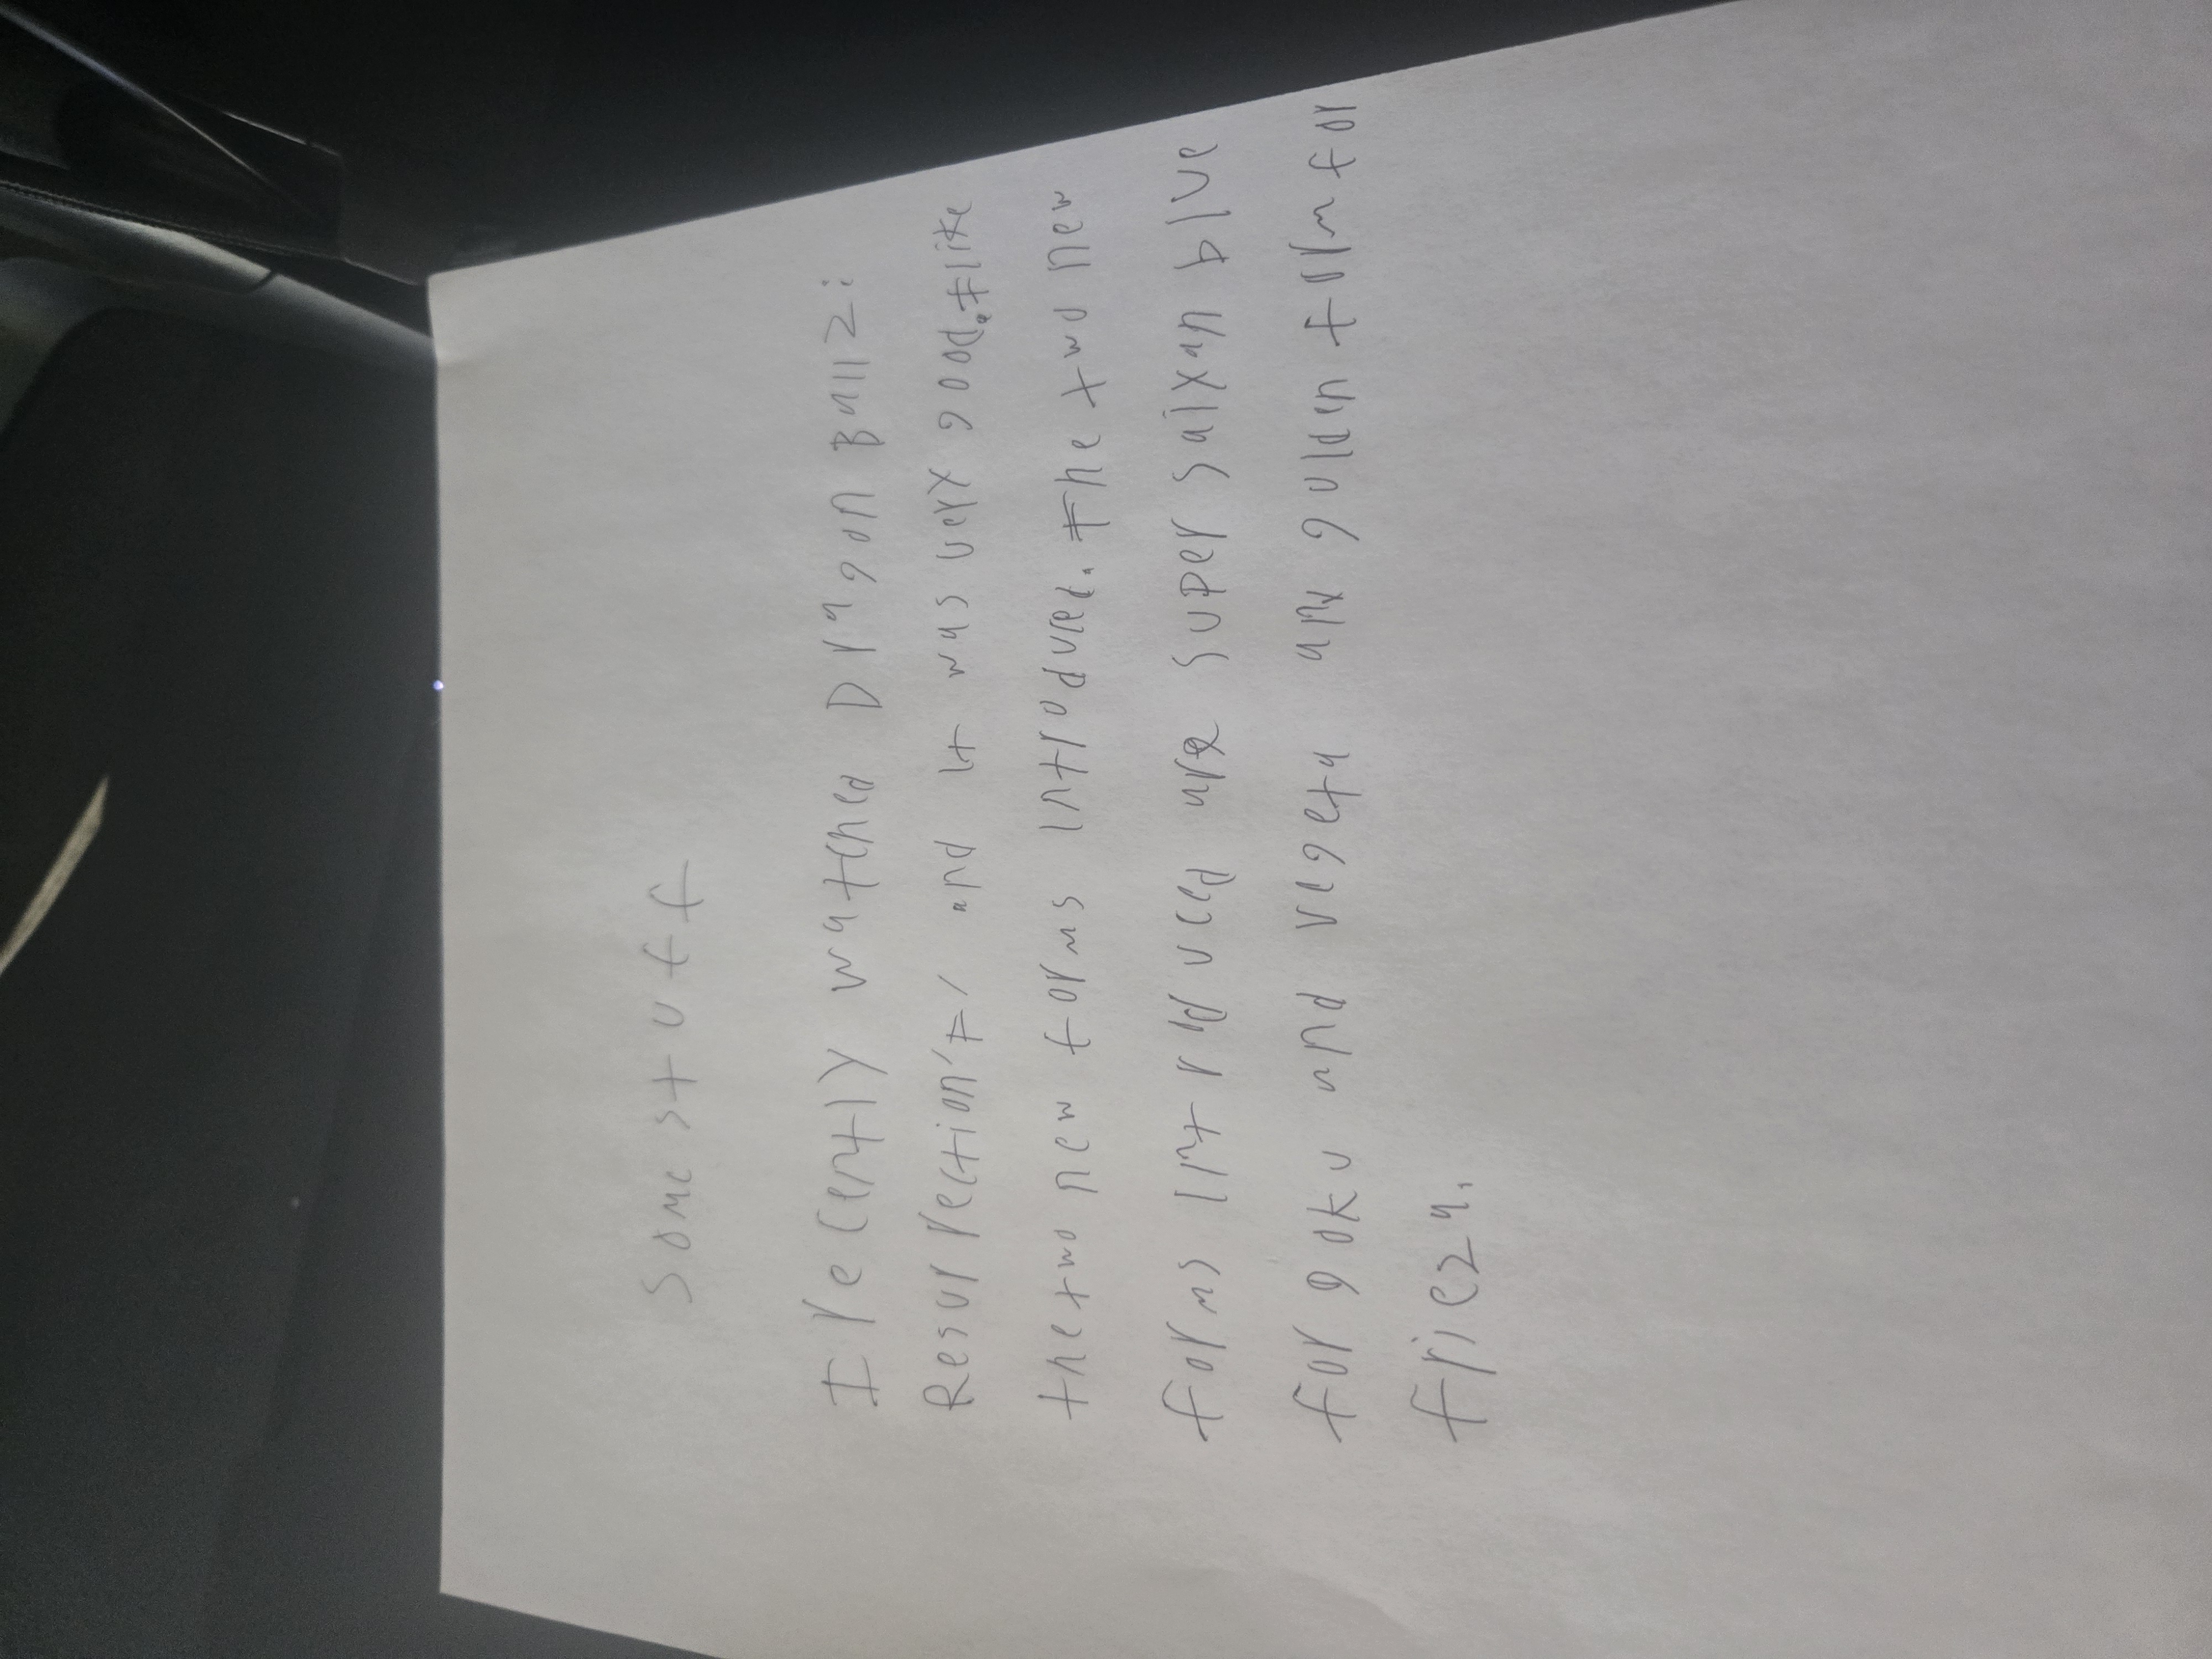 Some stuff
I recently watched Dragon Ball Z:
Resurrection 'F' and it was very good. I like
the two new forms introduced. The two new
forms introduced are super saiyan blue
for goku and vegeta and golden form for
frieza.